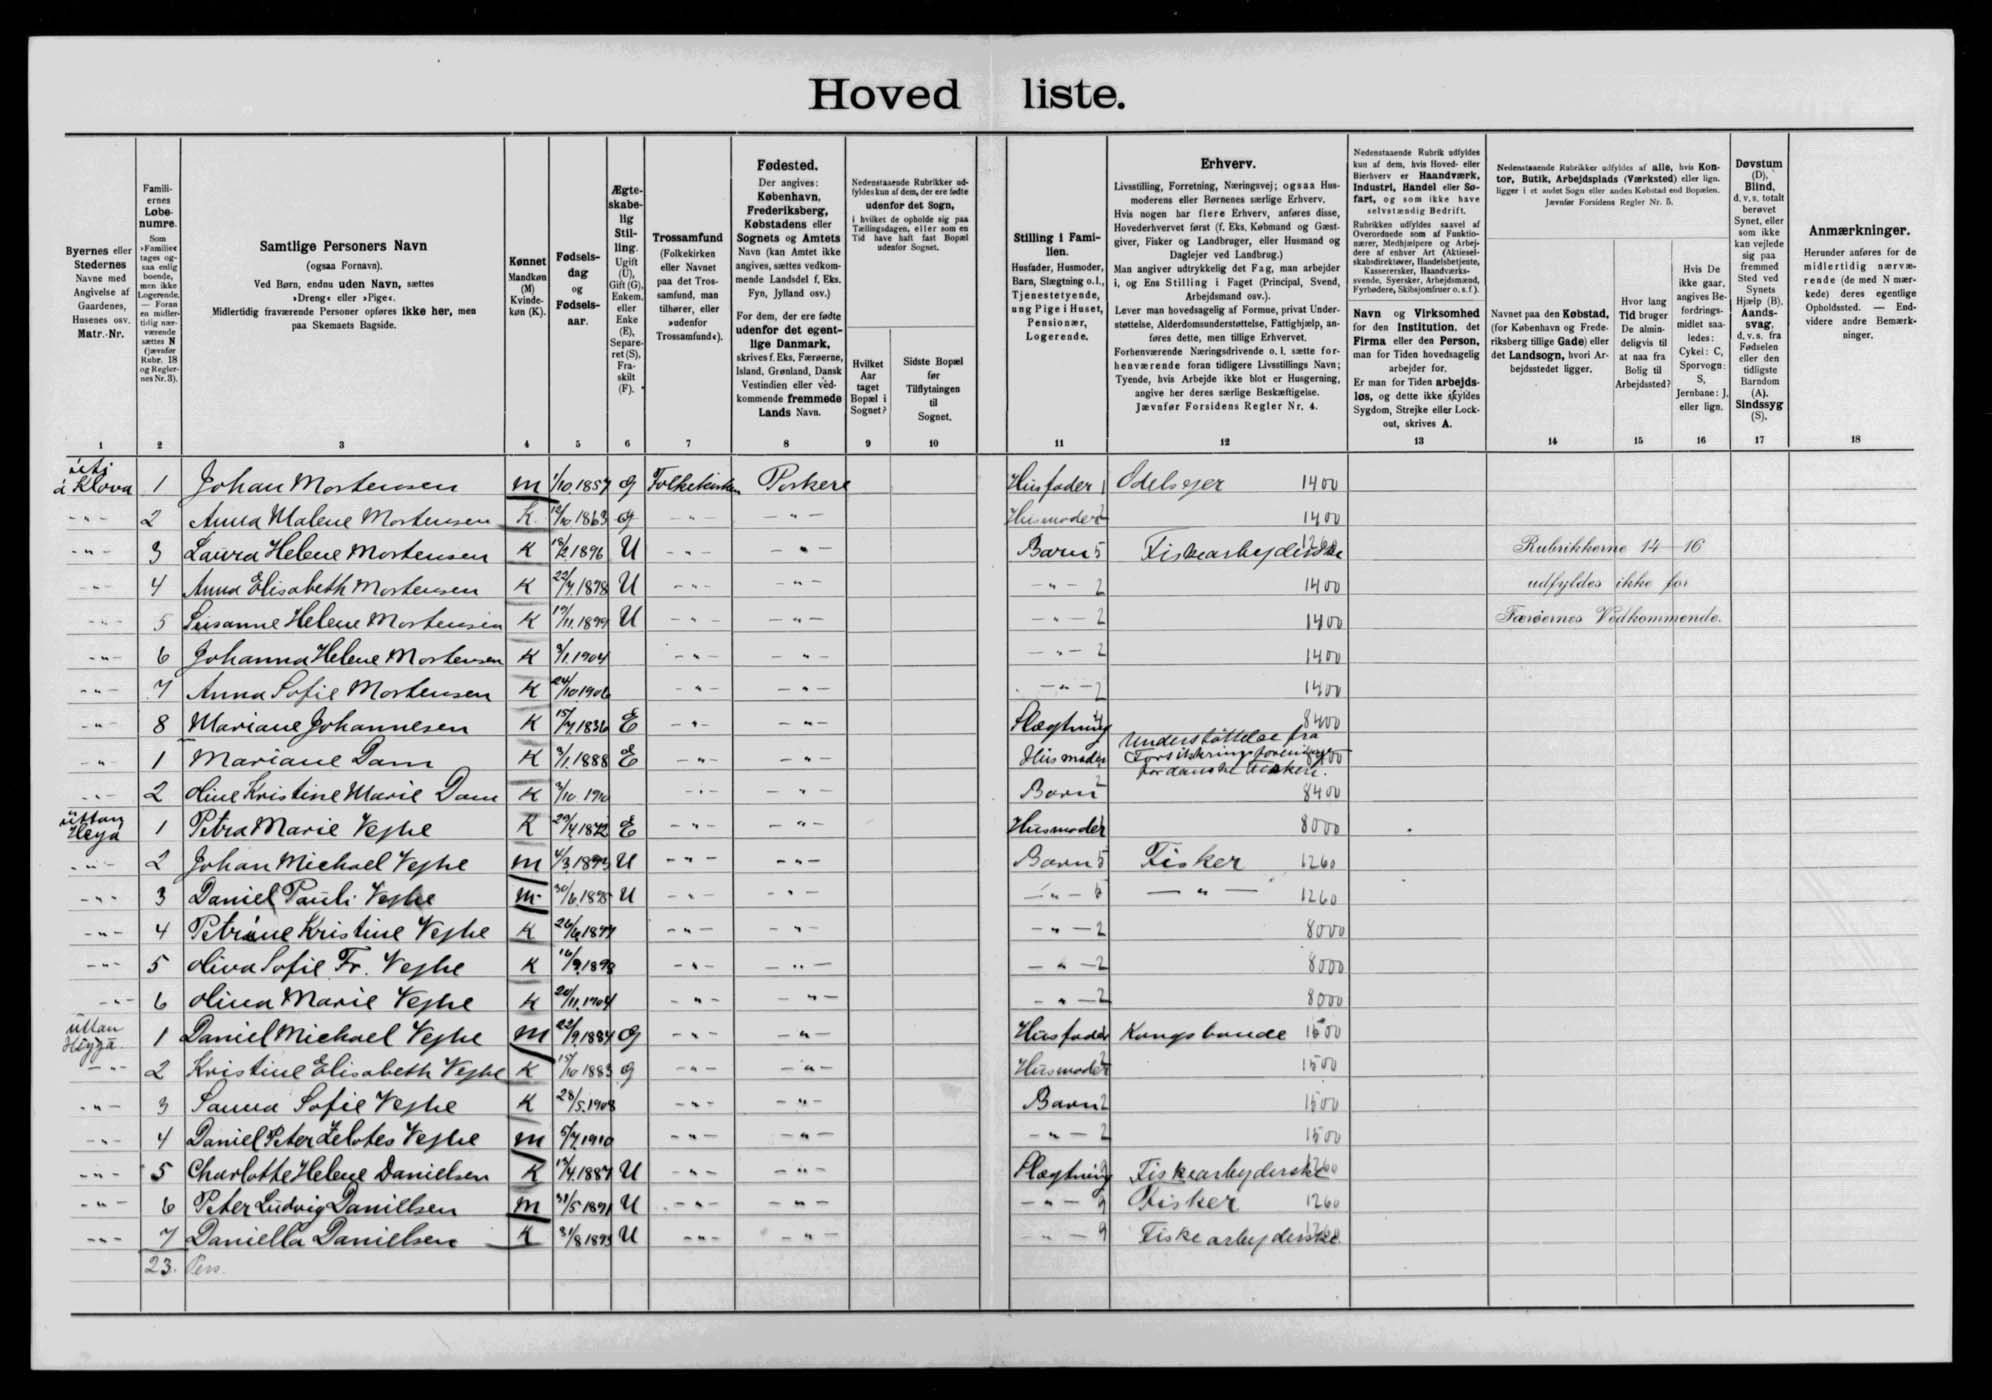 Hoved liste.
Byernes eller Stedernes Navne med Angivelse af Gaardenes, Husenes osv. Matr.-Nr.
Famili-ernes Løbe-numre. Som »Familie« tages og-saa enlig boende, men ikke Logerende. — Foran en midler-tidig nær-værende sættes N (jævnfør Rubr. 18 og Regler-nes Nr. 3).
Samtlige Personers Navn
(ogsaa Fornavn).
Ved Børn, endnu uden Navn, sættes
»Dreng« eller »Pige«.
Midlertidig fraværende Personer opføres ikke her, men
paa Skemaets Bagside.
Kønnet Mandkøn (M) Kvinde-køn (K).
Fødsels-dag og Fødsels-aar.
Ægte-skabe-lig Stil-ling. Ugift (U), Gift (G), Enkem. eller Enke (E), Separe-ret (S), Fra-skilt (F).
Trossamfund (Folkekirken eller Navnet paa det Tros-samfund, man tilhører, eller »udenfor Trossamfund«).
Fødested. Der angives: København, Frederiksberg, Købstadens eller Sognets og Amtets Navn (kan Amtet ikke angives, sættes vedkom-mende Landsdel f. Eks. Fyn, Jylland osv.)
For dem, der ere fødte udenfor det egent-lige Danmark, skrives f. Eks. Færøerne, Island, Grønland, Dansk Vestindien eller ved-kommende fremmede Lands Navn.
Nedenstaaende Rubrikker ud-fyldes kun af dem, der ere fødte udenfor det Sogn, i hvilket de opholde sig paa Tællingsdagen, eller som en Tid have haft fast Bopæl udenfor Sognet.
Hvilket Aar taget Bopæl i Sognet?
Sidste Bopæl før Tilflytningen til Sognet.
Stilling i Fami-lien. Husfader, Husmoder, Barn, Slægtning o.l., Tjenestetyende, ung Pige i Huset, Pensionær, Logerende.
Erhverv.
Livsstilling, Forretning, Næringsvej; ogsaa Hus-moderens eller Børnenes særlige Erhverv.
Hvis nogen har flere Erhverv, anføres disse, Hovederhvervet først (f. Eks. Købmand og Gæst-giver, Fisker og Landbruger, eller Husmand og Daglejer ved Landbrug.)
Man angiver udtrykkelig det Fag, man arbejder i, og Ens Stilling i Faget (Principal, Svend, Arbejdsmand osv.).
Lever man hovedsagelig af Formue, privat Under-støttelse, Alderdomsunderstøttelse, Fattighjælp, an-føres dette, men tillige Erhvervet.
Forhenværende Næringsdrivende o. l. sætte for-henværende foran tidligere Livsstillings Navn; Tyende, hvis Arbejde ikke blot er Husgerning, angive her deres særlige Beskæftigelse.
Jævnfør Forsidens Regler Nr. 4.
Nedenstaaende Rubrik udfyldes kun af dem, hvis Hoved- eller Bierhverv er Haandværk, Industri, Handel eller Sø-fart, og som ikke have selvstændig Bedrift.
Rubrikken udfyldes saavel af Overordnede som af Funktio-nærer, Medhjælpere og Arbej-dere af enhver Art (Aktiesel-skabsdirektører, Handelsbetjente, Kasserersker, Haandværks-svende, Syersker, Arbejdsmænd, Fyrbødere, Skibsjomfruer o. s. f.).
Navn og Virksomhed for den Institution, det Firma eller den Person, man for Tiden hovedsagelig arbejder for.
Er man for Tiden arbejds-løs, og dette ikke skyldes Sygdom, Strejke eller Lock-out, skrives A.
Nedenstaaende Rubrikker udfyldes af alle, hvis Kon-tor, Butik, Arbejdsplads (Værksted) eller lign. ligger i et andet Sogn eller anden Købstad end Bopælen. Jævnfør Forsidens Regler Nr. 5.
Navnet paa den Købstad, (for København og Frede-riksberg tillige Gade) eller det Landsogn, hvori Ar-bejdsstedet ligger.
Hvor lang Tid bruger De almin-deligvis til at naa fra Bolig til Arbejdssted?
Hvis De ikke gaar, angives Be-fordrings-midlet saa-ledes: Cykel: C, Sporvogn: S, Jernbane: J, eller lign.
Døvstum (D), Blind, d. v. s. totalt berøvet Synet, eller som ikke kan vejlede sig paa fremmed Sted ved Synets Hjælp (B). Aands-svag, d. v. s. fra Fødselen eller den tidligste Barndom (A). Sindssyg (S).
Anmærkninger.
Herunder anføres for de midlertidig nærvæ-rende (de med N mær-kede) deres egentlige Opholdssted. — End-videre andre Bemærk-ninger.
1 2 3 4 5 6 7 8 9 10 11 12 13 14 15 16 17 18
úti á Klova 1 Johan Mortensen M 1/10.1857 G Folkekirken Porkere Husfader 1 Odelsejer 1400
-"- 2 Anna Malene Mortensen K 12/10.1863 G -"- -"- Husmoder 2 1400
-"- 3 Laura Helene Mortensen K 18/2.1896 U -"- -"- Barn 5 Fiskearbejderske 1260 Rubrikkerne 14-16
-"- 4 Anna Elisabeth Mortensen K 22/7.1898 U -"- -"- -"- 2 1400 udfyldes ikke for
-"- 5 Susanne Helene Mortensen K 19/11.1899 U -"- -"- -"- 2 1400 Færøernes Vedkommende.
-"- 6 Johanna Helene Mortensen K 9/1.1904 -"- -"- -"- 2 1400
-"- 7 Anna Sofie Mortensen K 24/10.1906 -"- -"- -"- 2 1400
-"- 8 Mariane Johannesen K 15/7.1836 E -"- -"- Slægtning 8400
-"- 1 Mariane Dam K 3/1.1888 E -"- -"- Husmoder Understøttelse fra Forsikringsforeningen for danske Fiskere. 8400
-"- 2 Oline Kristine Marie Dam K 7/10.1910 -"- -"- Barn 2 8400
uttan Heyá 1 Petra Marie Vejhe K 29/7.1872 E -"- -"- Husmoder 8000
-"- 2 Johan Michael Vejhe M 4/3.1893 U -"- -"- Barn 5 Fisker 1260
-"- 3 Daniel Pauli Vejhe M 30/6.1895 U -"- -"- -"- 5 -"- 1260
-"- 4 Petrine Kristine Vejhe K 26/6.1897 -"- -"- -"- 2 8000
-"- 5 Oliva Sofie Fr. Vejhe K 16/9.1898 -"- -"- -"- 2 8000
-"- 6 Olina Marie Vejhe K 20/11.1904 -"- -"- -"- 2 8000
uttan Heyggá 1 Daniel Michael Vejhe M 22/9.1884 G -"- -"- Husfader Kongsbonde 1500
-"- 2 Kristine Elisabeth Vejhe K 15/10.1883 G -"- -"- Husmoder 2 1500
-"- 3 Sanna Sofie Vejhe K 28/5.1908 -"- -"- Barn 2 1500
-"- 4 Daniel Peter Zelotes Vejhe M 5/7.1910 -"- -"- -"- 2 1500
-"- 5 Charlotte Helene Danielsen K 17/7.1887 U -"- -"- Slægtning 9 Fiskearbejderske 1260
-"- 6 Peter Ludvig Danielsen M 31/5.1891 U -"- -"- -"- 9 Fisker 1260
-"- 7 Daniella Danielsen K 31/8.1893 U -"- -"- -"- 9 Fiskearbejderske 1260
23. Pers.